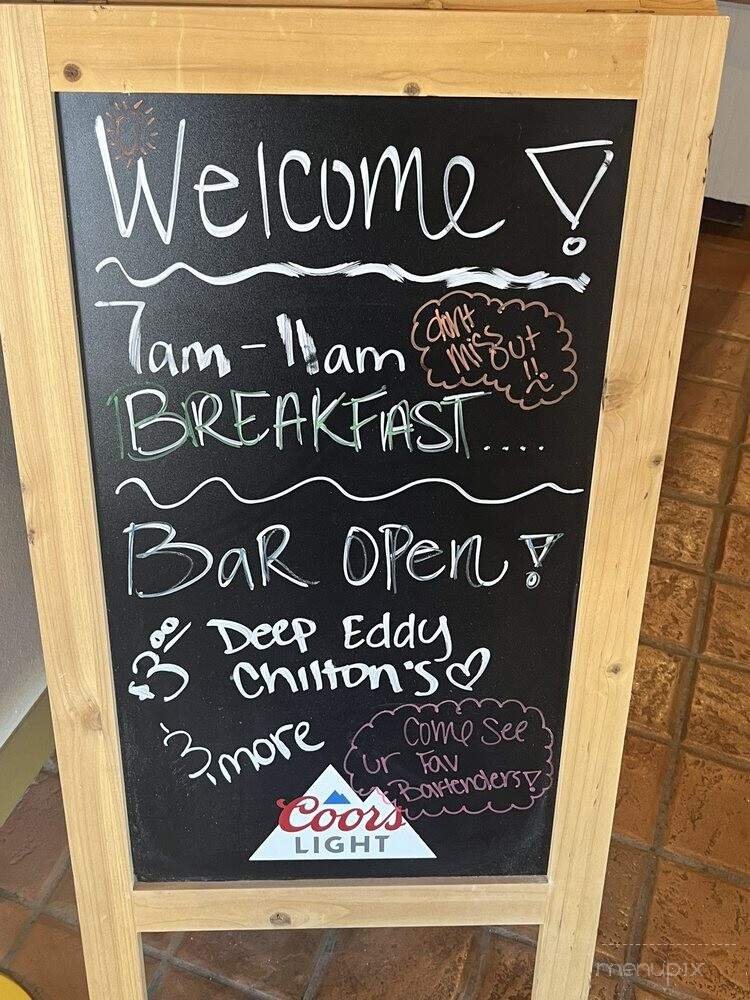 Welcome!
7am - 11am
dont
miss out
!!
BREAKFAST....
Bar Open!
$3.00 Deep Eddy
Chilton's
& more
Come See
ur Fav
Bartenders!
Coors
LIGHT
menupix